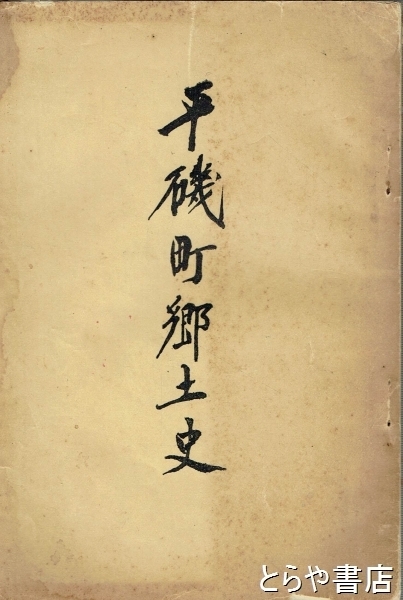 平磯町郷土史
とらや書店